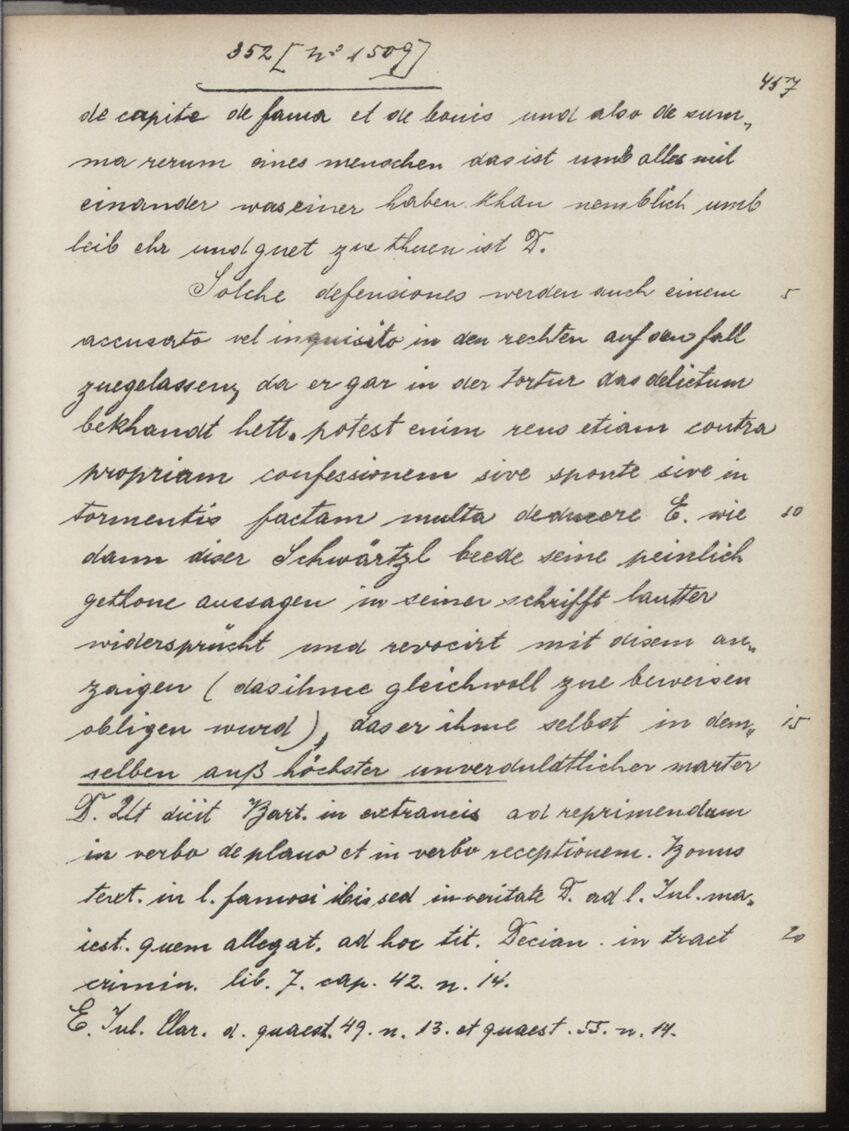 352 [No 1509]
457
de capite de fama et de bonis und also de sum„
ma rerum eines menschen das ist umb alles mit
einander was einer haben khan nemblich umb
leib ehr und guet zue thuen ist D.
Solche defensiones werden auch einem 5
accusato vel inquisito in den rechten auf den fall
zuegelassen, da er gar in der tortur das delictum
bekhandt hett. potest enim reus etiam contra
propriam confessionem sive sponte sive in
tormentis factam multa deducere E. wie 10
dann diser Schwärtzl beede seine peinlich
gethone aussagen in seiner schrifft lautter
widersprücht und revocirt mit disem an„
zaigen (das ihme gleichwoll zue beweisen
obligen wurd), das er ihme selbst in dem„ 15
selben auß höchster unverduldtlicher marter
D. Ut dicit Bart. in extrancis ad reprimendum
in verbo de plano et in verbo receptionem. Bonus
text. in l. famosi ibi sed in veritate D. ad l. Jul. ma„
iest. quem allegat. ad hoc tit. Decian. in tract 20
crimin. lib. 7. cap. 42. n. 14.
E. Jul. Clar. d. quaest. 49. n. 13. et quaest. 55. n. 14.